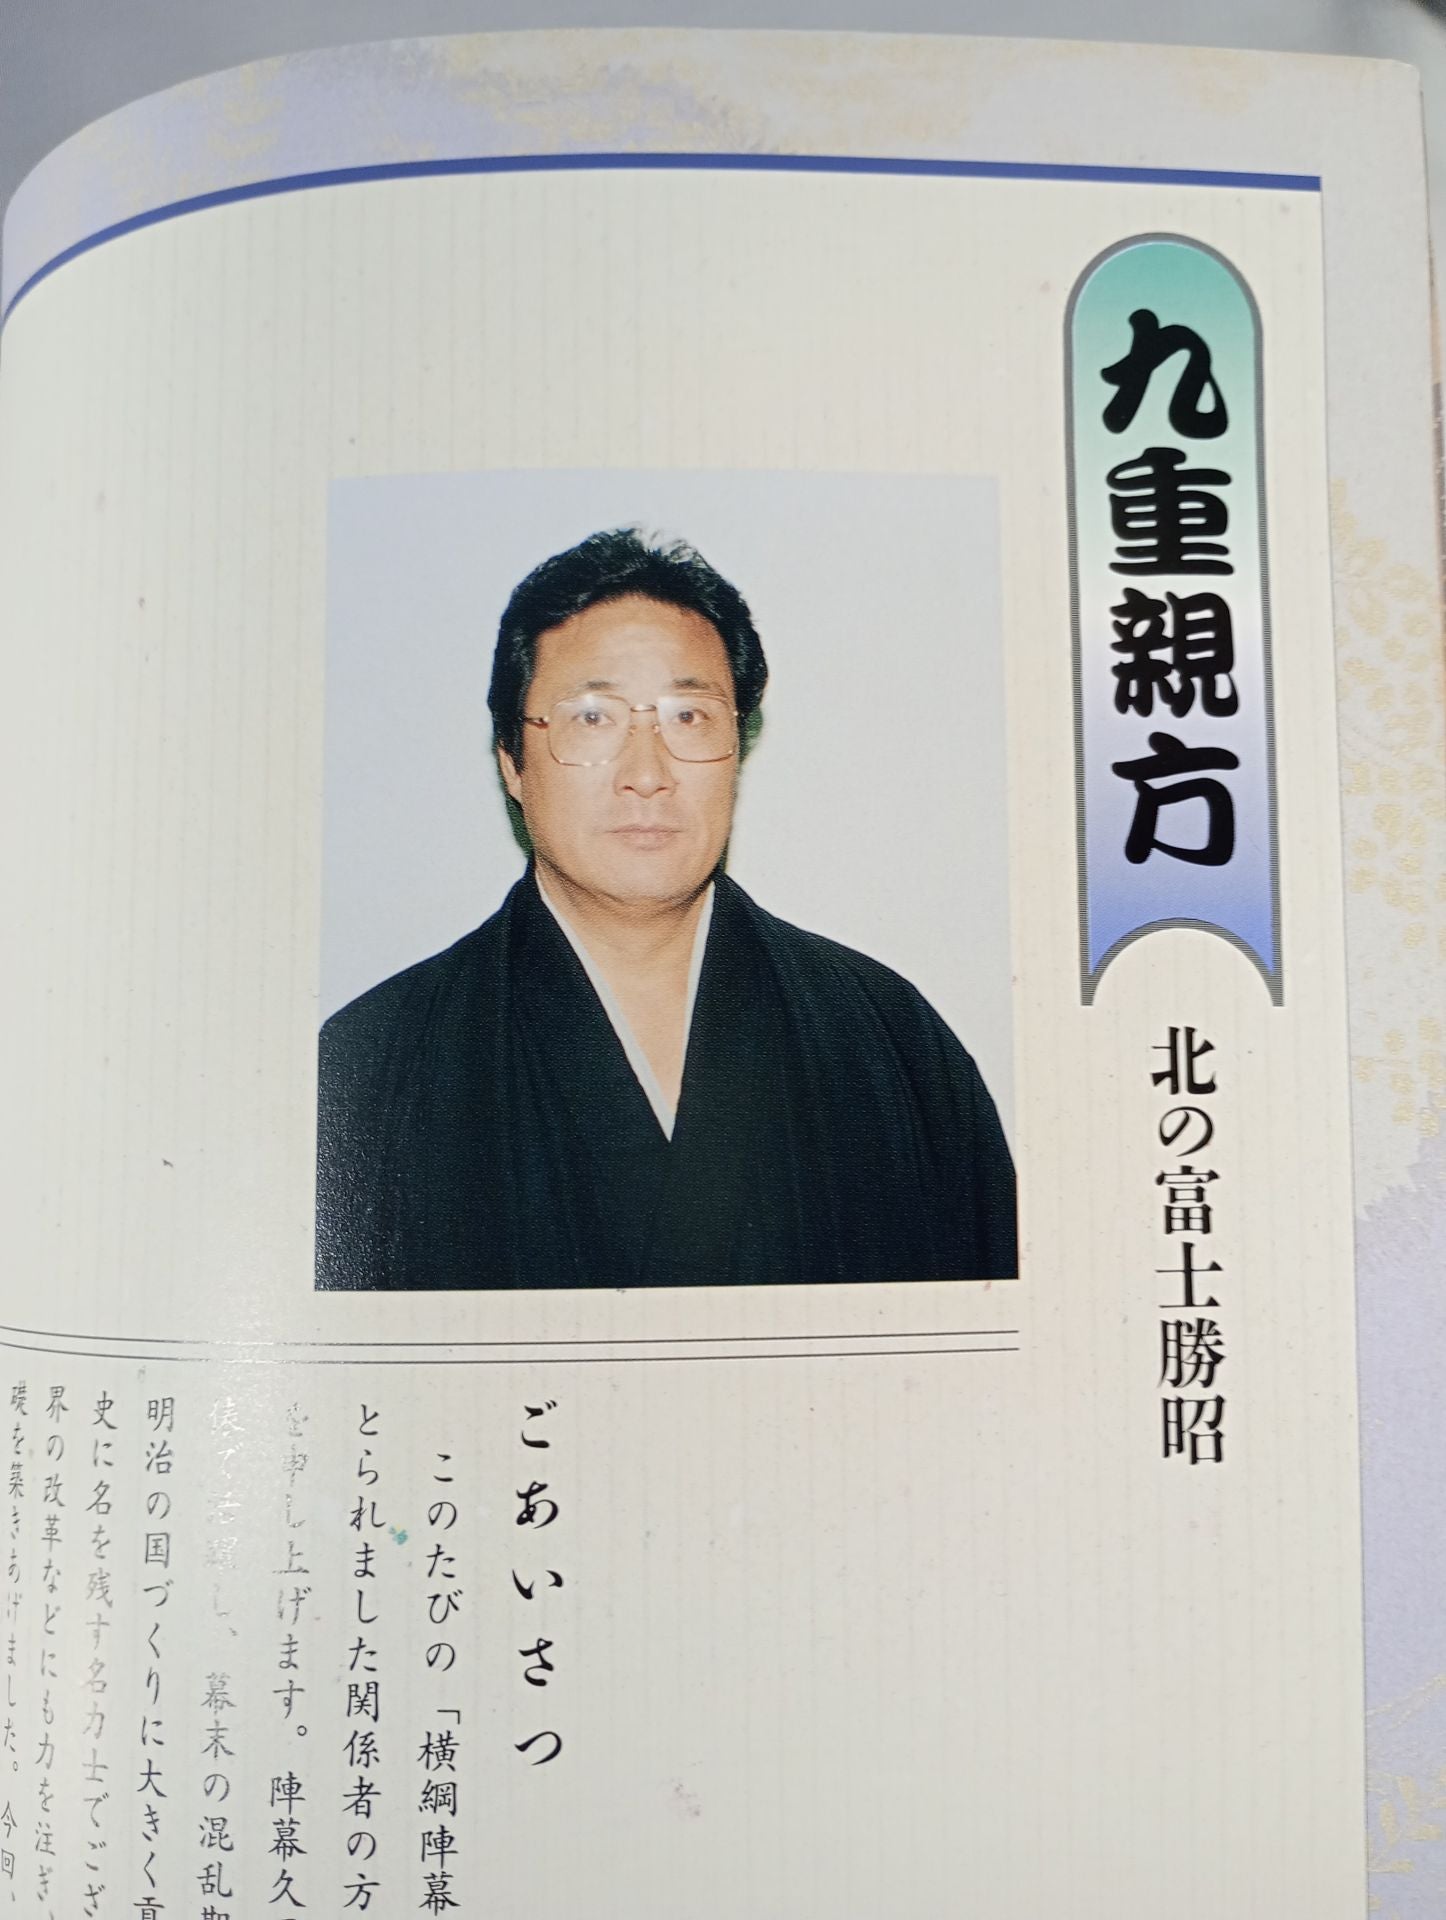 九重親方
北の富士勝昭
ごあいさつ
このたびの「横綱陣幕
とられました関係者の方
を申し上げます。陣幕久
俵で活躍し、幕末の混乱期
明治の国づくりに大きく貢
史に名を残す名力士でござ
界の改革などにも力を注ぎ、
礎を築きあげました。今回、